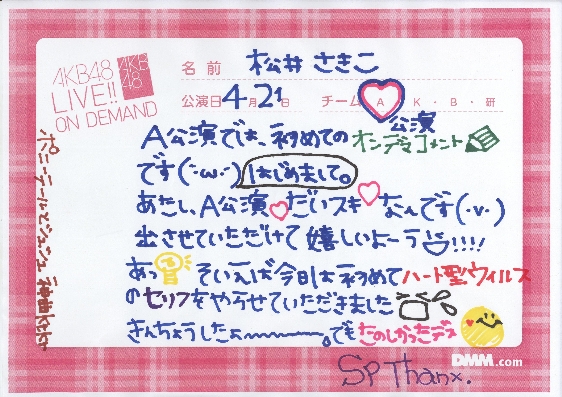 AKB48
LIVE!!
ON DEMAND
AKB
48
名前 松井 さきこ
公演日 4月21日 チーム A・K・B・研
A公演では、初めての公演オンデマコメント
です(・ω・) はじめまして。
あたし、A公演だいスキなんです(・v・)
出させていただけて嬉しいよーう!!!!
あっ そいえば今日は初めてハート型ウィルス
のセリフをやらせていただきました
きんちょうしたよ〜〜〜。でもたのしかったデス
ポニーテールとシュシュ 神曲
DMM.com
SP Thanx.